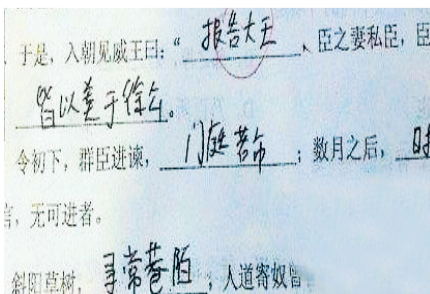 于是，入朝见威王曰：“报告大王、臣之妻私臣，臣
皆以美于徐公。
令初下，群臣进谏，门庭若市；数月之后，时
言，无可进者。
斜阳草树，寻常巷陌，人道寄奴曾